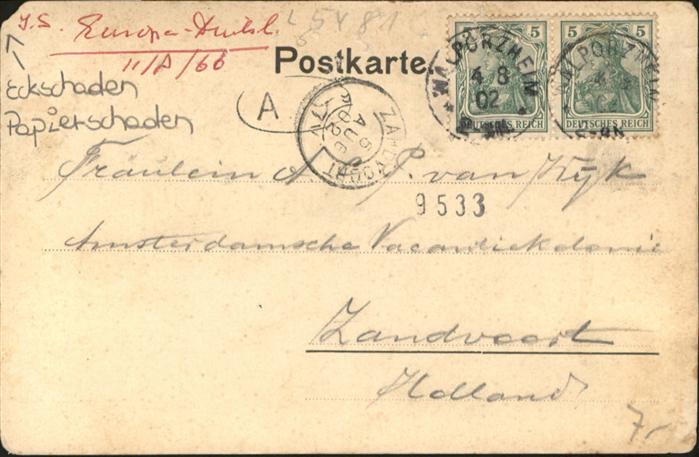 I.S. Europa-Deutschl.
II/A/66
L 5481
Eckschaden
Papierschaden
Postkarte.
A
5 5 5 5
DEUTSCHES REICH DEUTSCHES REICH
WALPORZHEIM
4 8
02
WALPORZHEIM
ZANDVOORT
6 AUG
02
Fräulein A. P. van Wijk
9533
Amsterdamsche Vacantiekolonie
Zandvoort
Holland
7,-